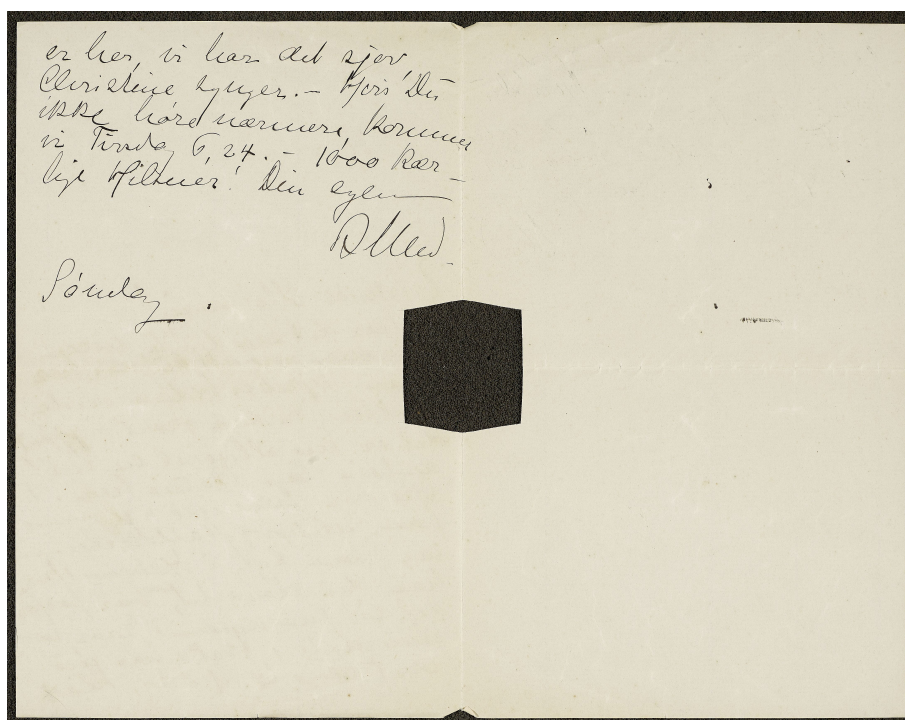 er her, vi har det sjov
Christine synger. – Hvis Du
ikke hører nærmere, kommer
vi Tirsdag 6,24. – 1000 kær-
lige Hilsner! Din egen
Søndag